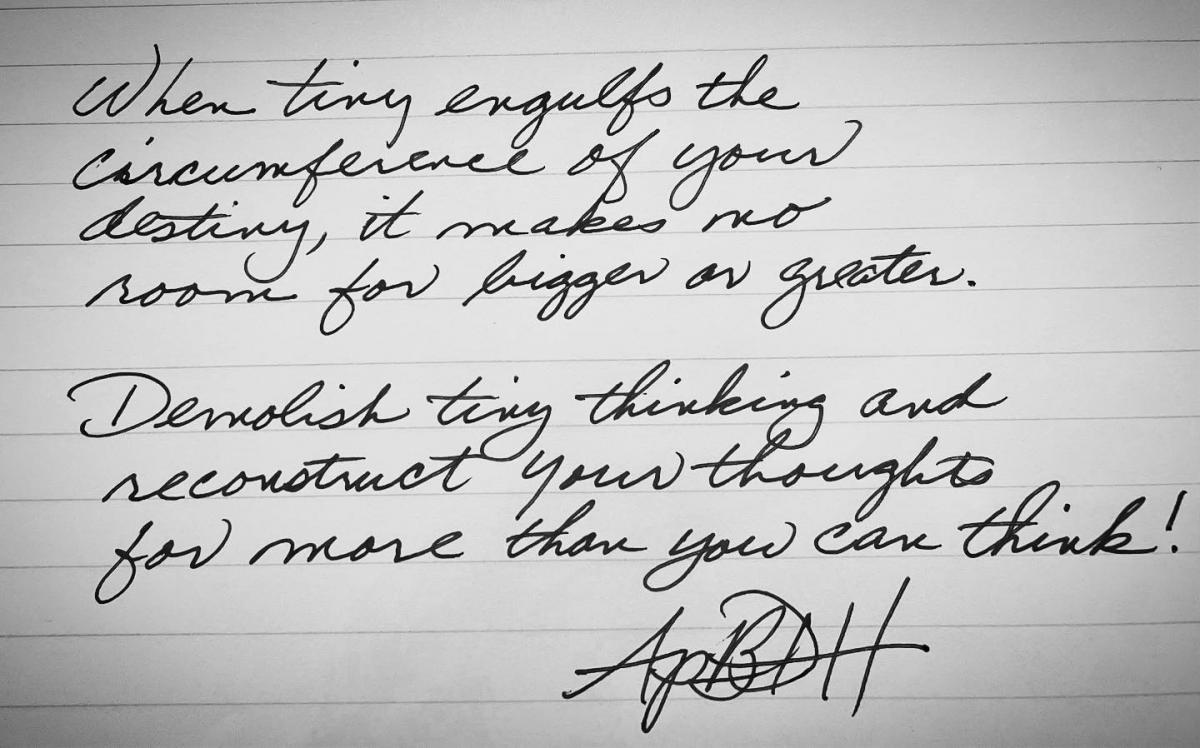 When tiny engulfs the
circumference of your
destiny, it makes no
room for bigger or greater.
Demolish tiny thinking and
reconstruct your thoughts
for more than you can think!
ApBDH